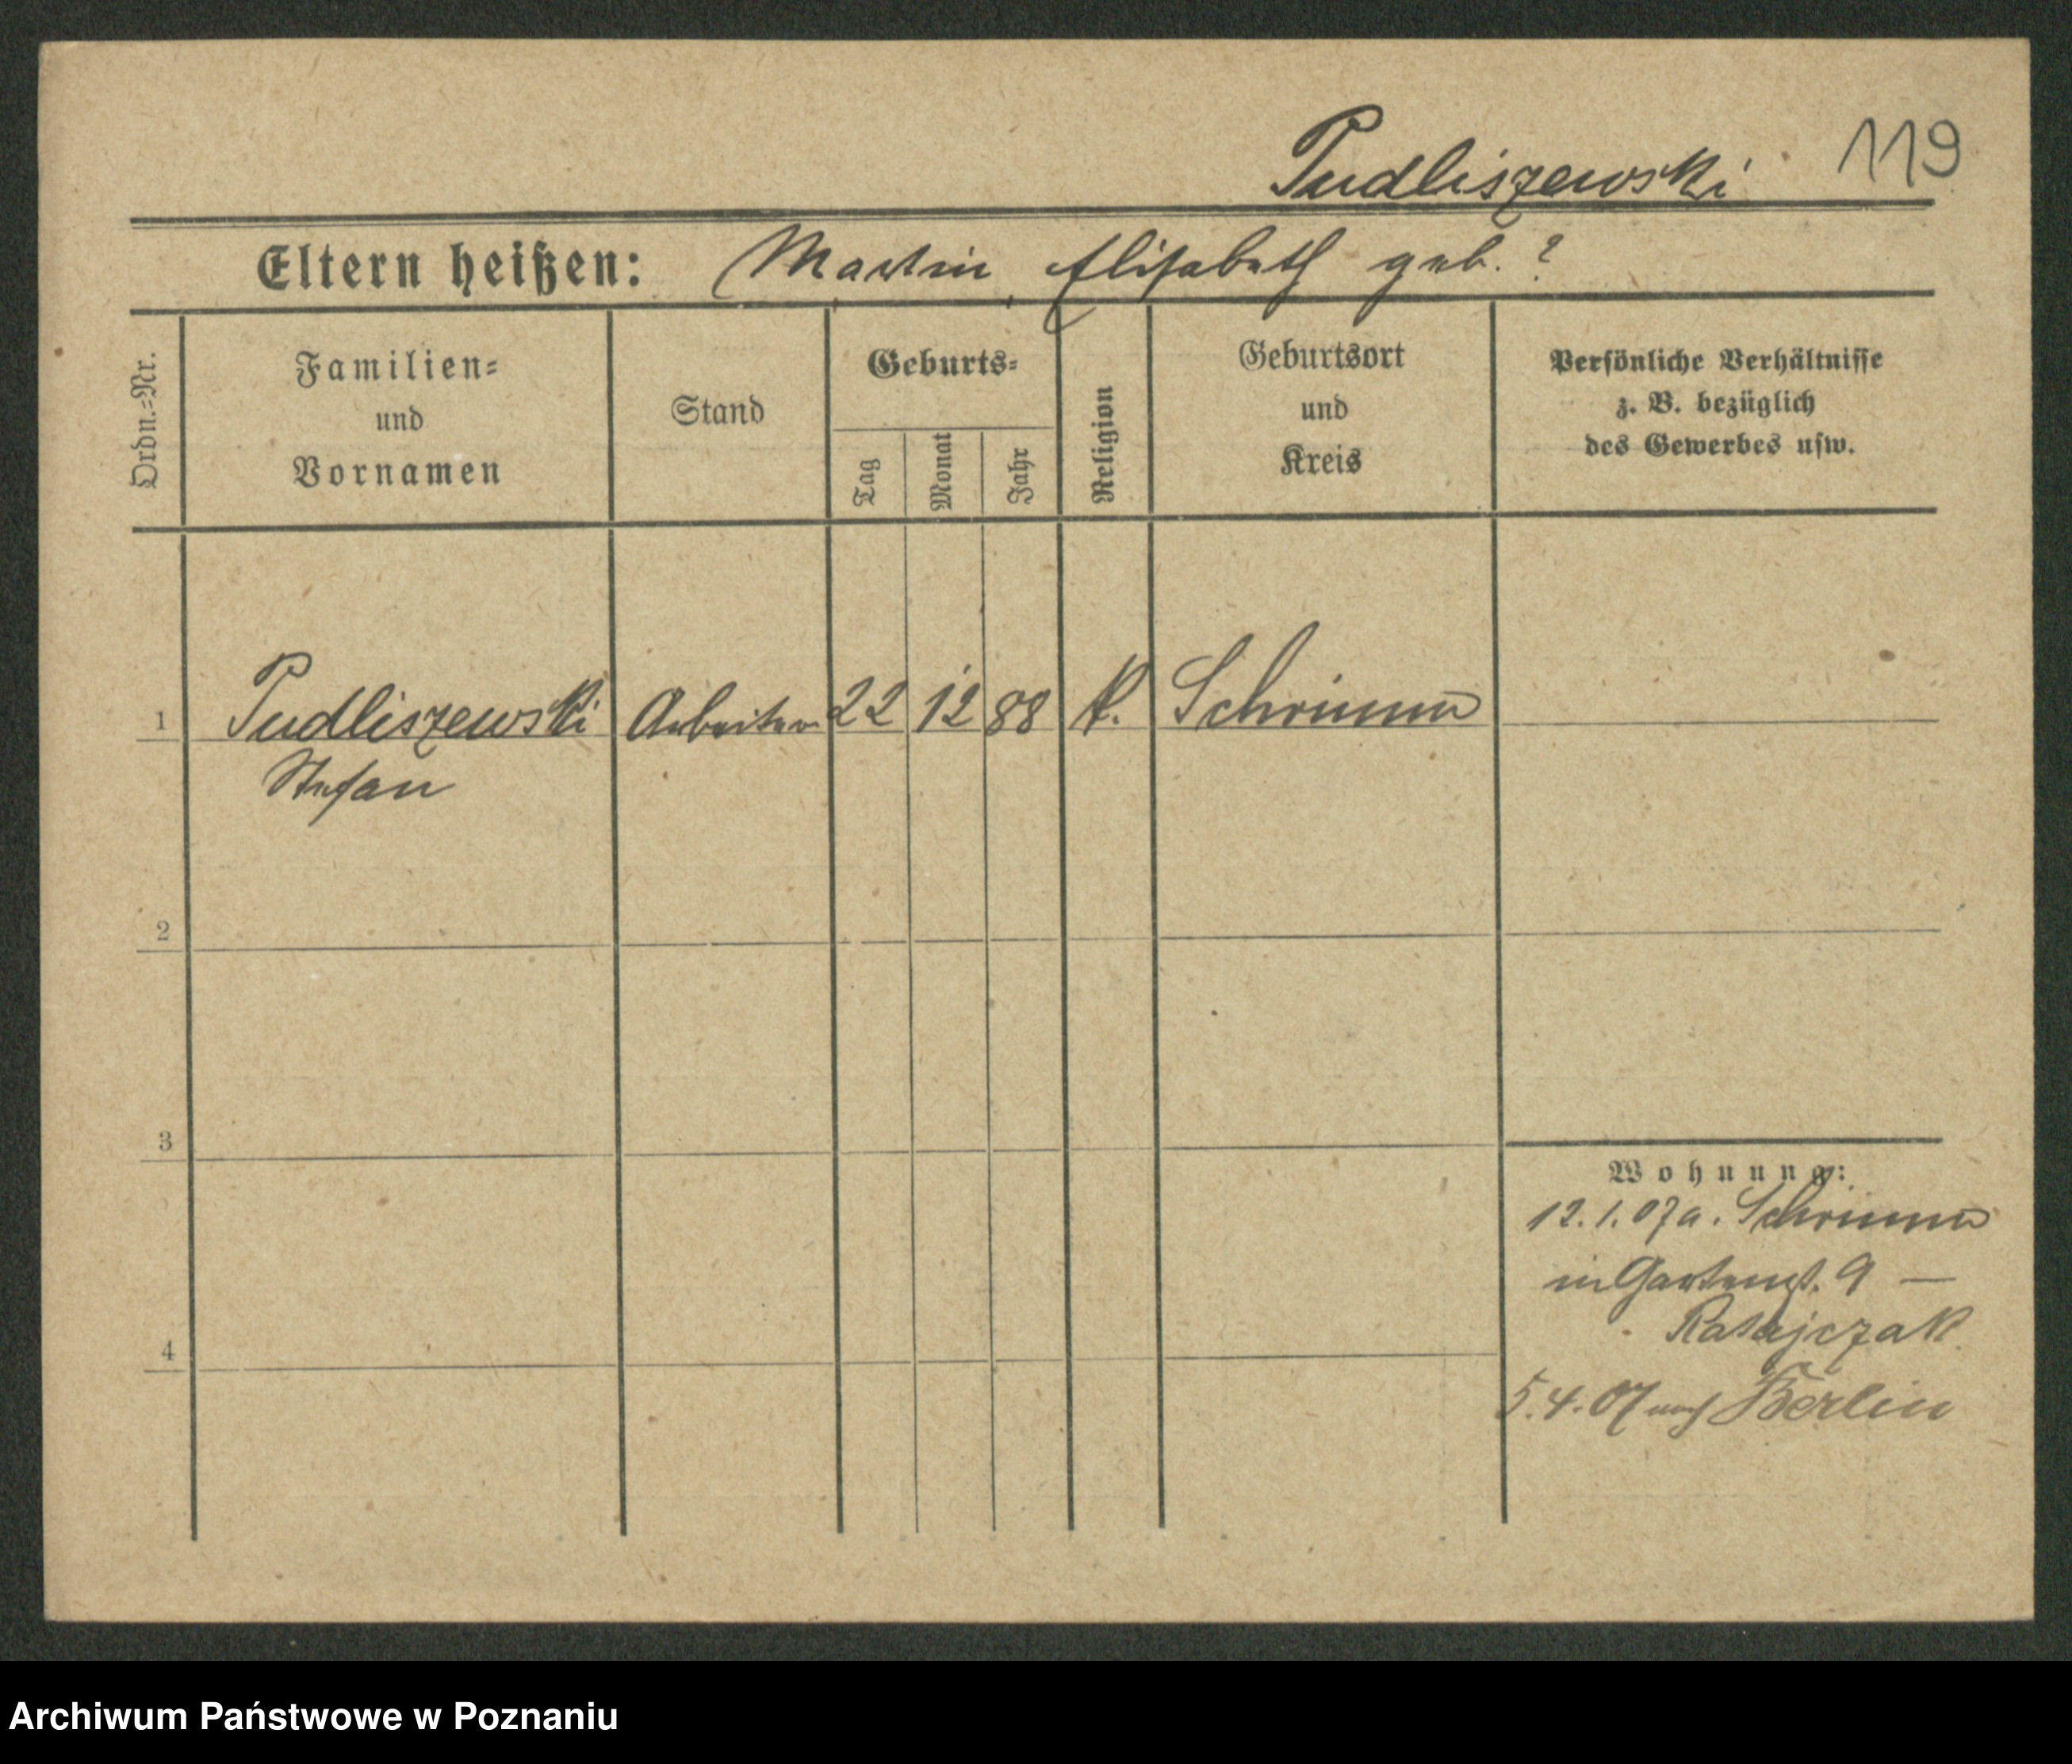 Pudliszewski 119
Eltern heißen: Martin, Elisabeth geb. ?
Ordn.-Nr.
Familien-
und
Vornamen
Stand
Geburts-
Tag
Monat
Jahr
Religion
Geburtsort
und
Kreis
Persönliche Verhältnisse
z. B. bezüglich
des Gewerbes usw.
1 Pudliszewski Arbeiter 22 12 88 k. Schrimm
Stefan
2
3
4
Wohnung:
12.1.07 a. Schrimm
in Gartenst. 9 —
Ratajczak
5.4.07 nach Berlin
Archiwum Państwowe w Poznaniu